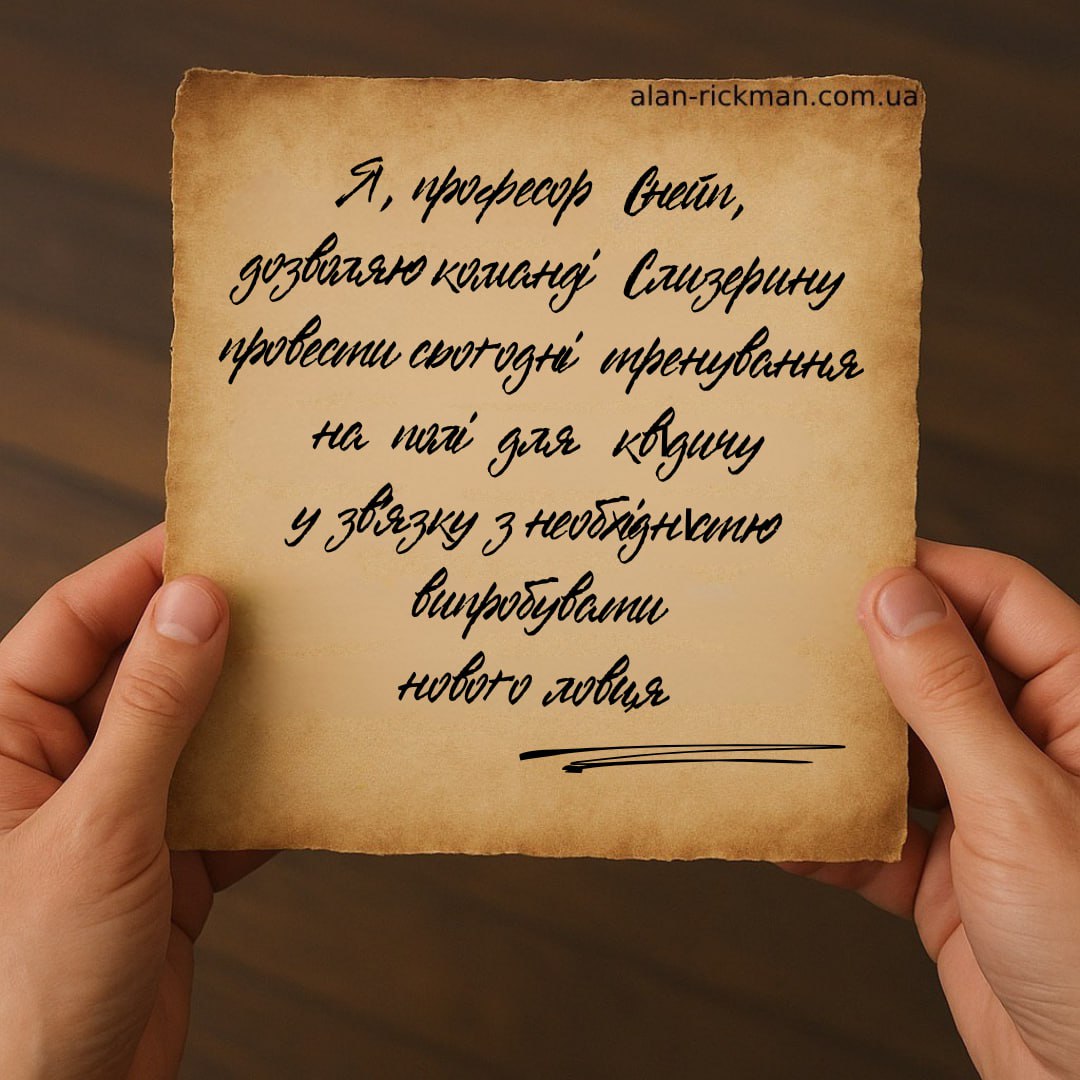 alan-rickman.com.ua
Я, професор Снейп,
дозволяю команді Слизерину
провести сьогодні тренування
на полі для квідичу
у зв'язку з необхідністю
випробувати
нового ловця